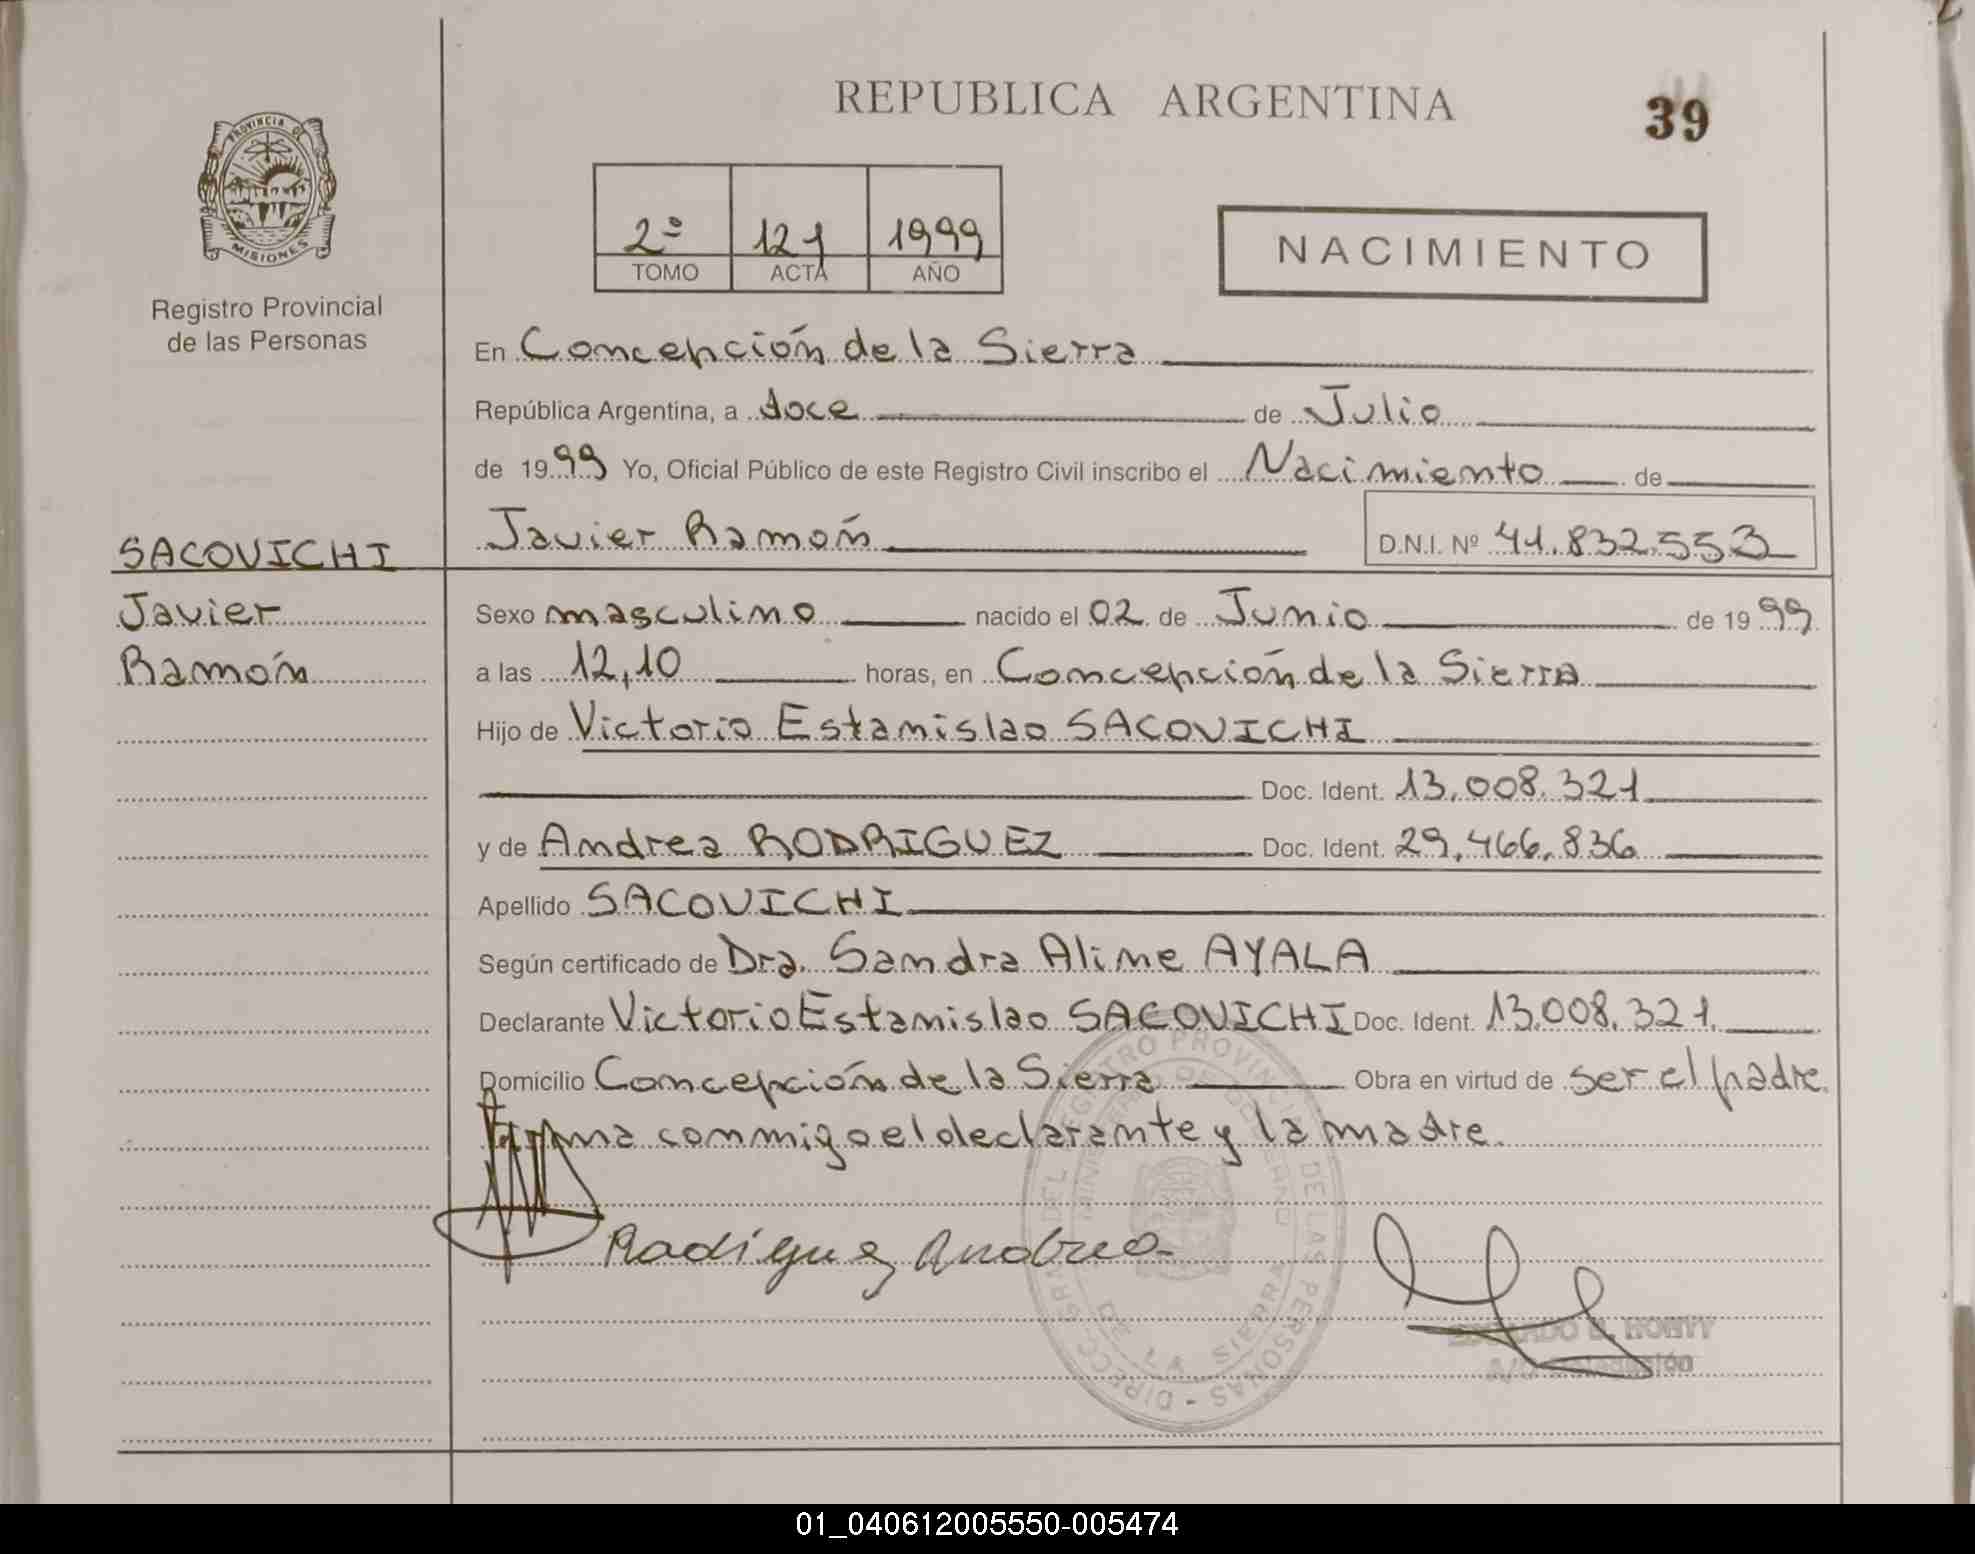 REPUBLICA ARGENTINA
39
PROVINCIA DE
MISIONES
Registro Provincial
de las Personas
2º 121 1999
TOMO ACTA AÑO
NACIMIENTO
En Concepción de la Sierra
República Argentina, a doce de Julio
de 1999 Yo, Oficial Público de este Registro Civil inscribo el Nacimiento de
Javier Ramón D.N.I. Nº 41.832.553
SACOVICHI
Javier
Ramón
Sexo masculino nacido el 02 de Junio de 1999
a las 12,10 horas, en Concepción de la Sierra
Hijo de Victorio Estanislao SACOVICHI
Doc. Ident. 13.008.321
y de Andrea RODRIGUEZ Doc. Ident. 29.466.836
Apellido SACOVICHI
Según certificado de Dra. Sandra Aline AYALA
Declarante Victorio Estanislao SACOVICHI Doc. Ident. 13.008.321.
Domicilio Concepción de la Sierra Obra en virtud de ser el padre.
Firma conmigo el declarante y la madre.
Rodriguez Andrea
DIRECC. GRAL. DEL REGISTRO PROVINCIAL DE LAS PERSONAS -
MINISTERIO DE GOBIERNO
DE LA SIERRA
A/C Delegación
01_040612005550-005474